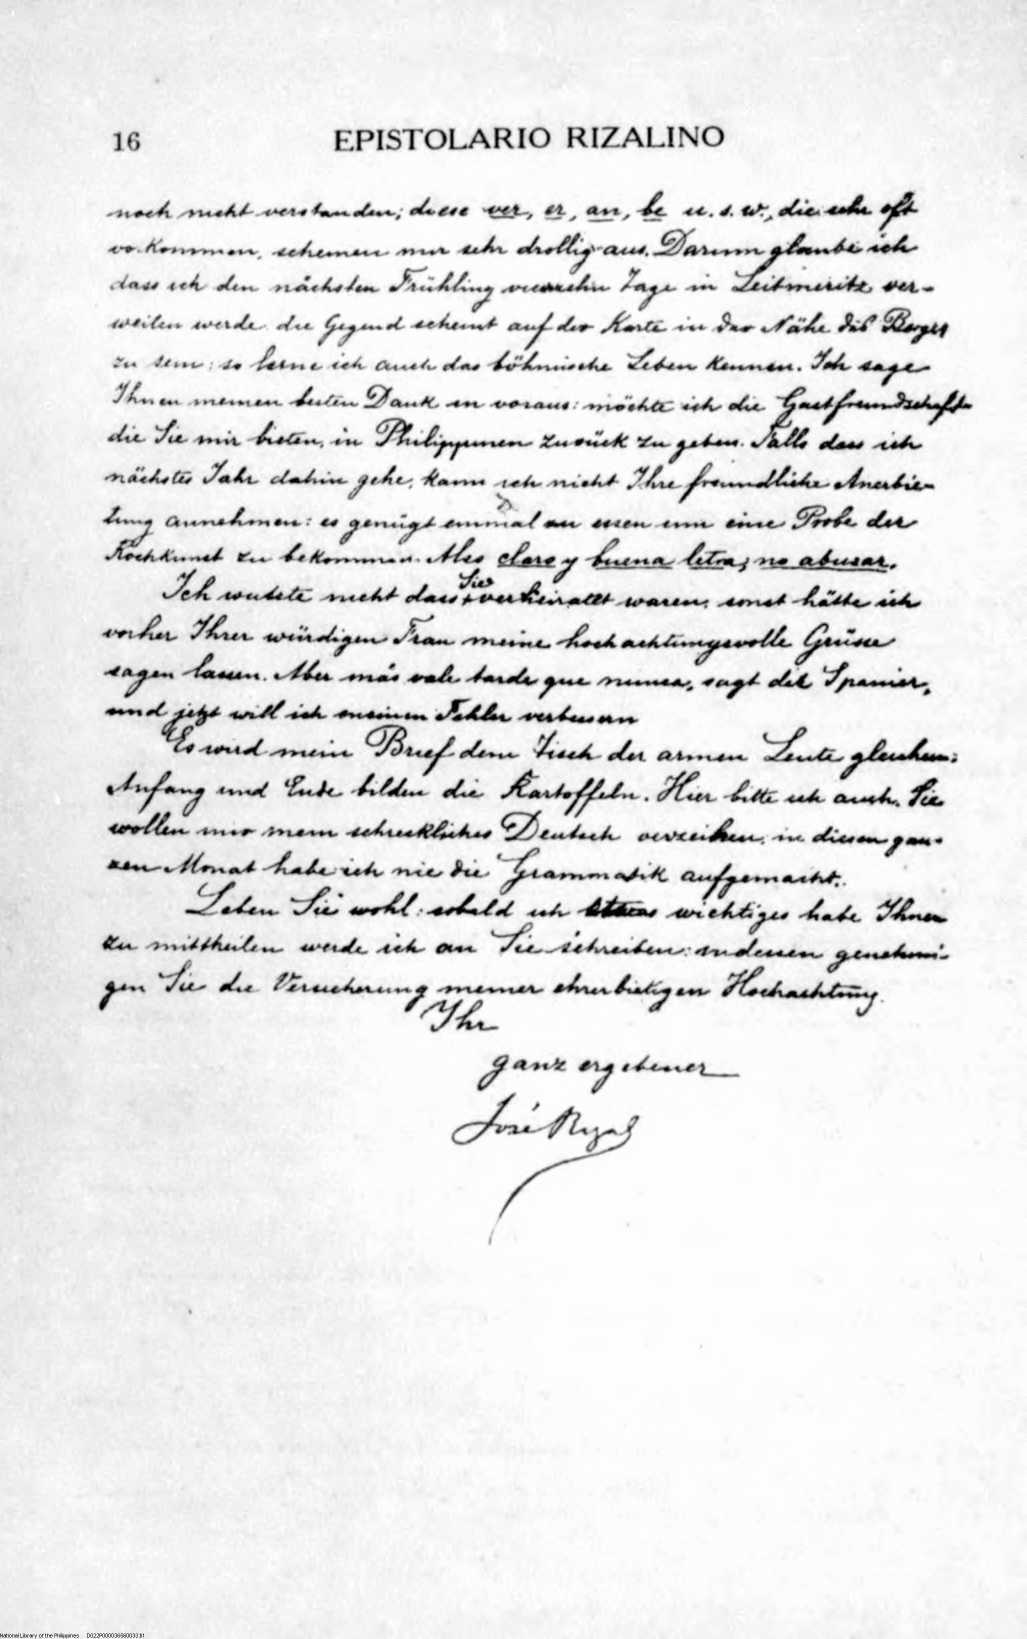 16 EPISTOLARIO RIZALINO
noch nicht verstanden; diese ver, er, an, be u. s. w., die sehr oft
vorkommen, scheinen mir sehr drollig aus. Darum glaube ich
dass ich den nächsten Frühling vierzehn Tage in Leitmeritz ver-
weilen werde. die Gegend scheint auf der Karte in der Nähe des Berges
zu sein: so lerne ich auch das böhmische Leben kennen. Ich sage
Ihnen meinen besten Dank in voraus: möchte ich die Gastfreundschaft
die Sie mir bieten, in Philippinen zurück zu geben. Falls dass ich
nächstes Jahr dahin gehe, kann ich nicht Ihre freundliche Anerbie-
tung annehmen: es genügt einmal zu essen um eine Probe der
Kochkunst zu bekommen. Also claro y buena letra; no abusar.
Ich wusste nicht dass Sie verheiratet waren, sonst hätte ich
vorher Ihrer würdigen Frau meine hochachtungsvolle Grüsse
sagen lassen. Aber más vale tarde que nunca, sagt der Spanier,
und jetzt will ich meinen Fehler verbessern
Es wird mein Brief dem Tisch der armen Leute gleichen:
Anfang und Ende bilden die Kartoffeln. Hier bitte ich auch, Sie
wollen mir mein schreckliches Deutsch verzeihen: in diesen gan-
zen Monat habe ich nie die Grammatik aufgemacht.
Leben Sie wohl: sobald ich etwas wichtiges habe Ihnen
zu mittheilen werde ich an Sie schreiben: indessen genehmi-
gen Sie die Versicherung meiner ehrerbietigen Hochachtung.
Ihr
ganz ergebener
José Rizal
National Library of the Philippines